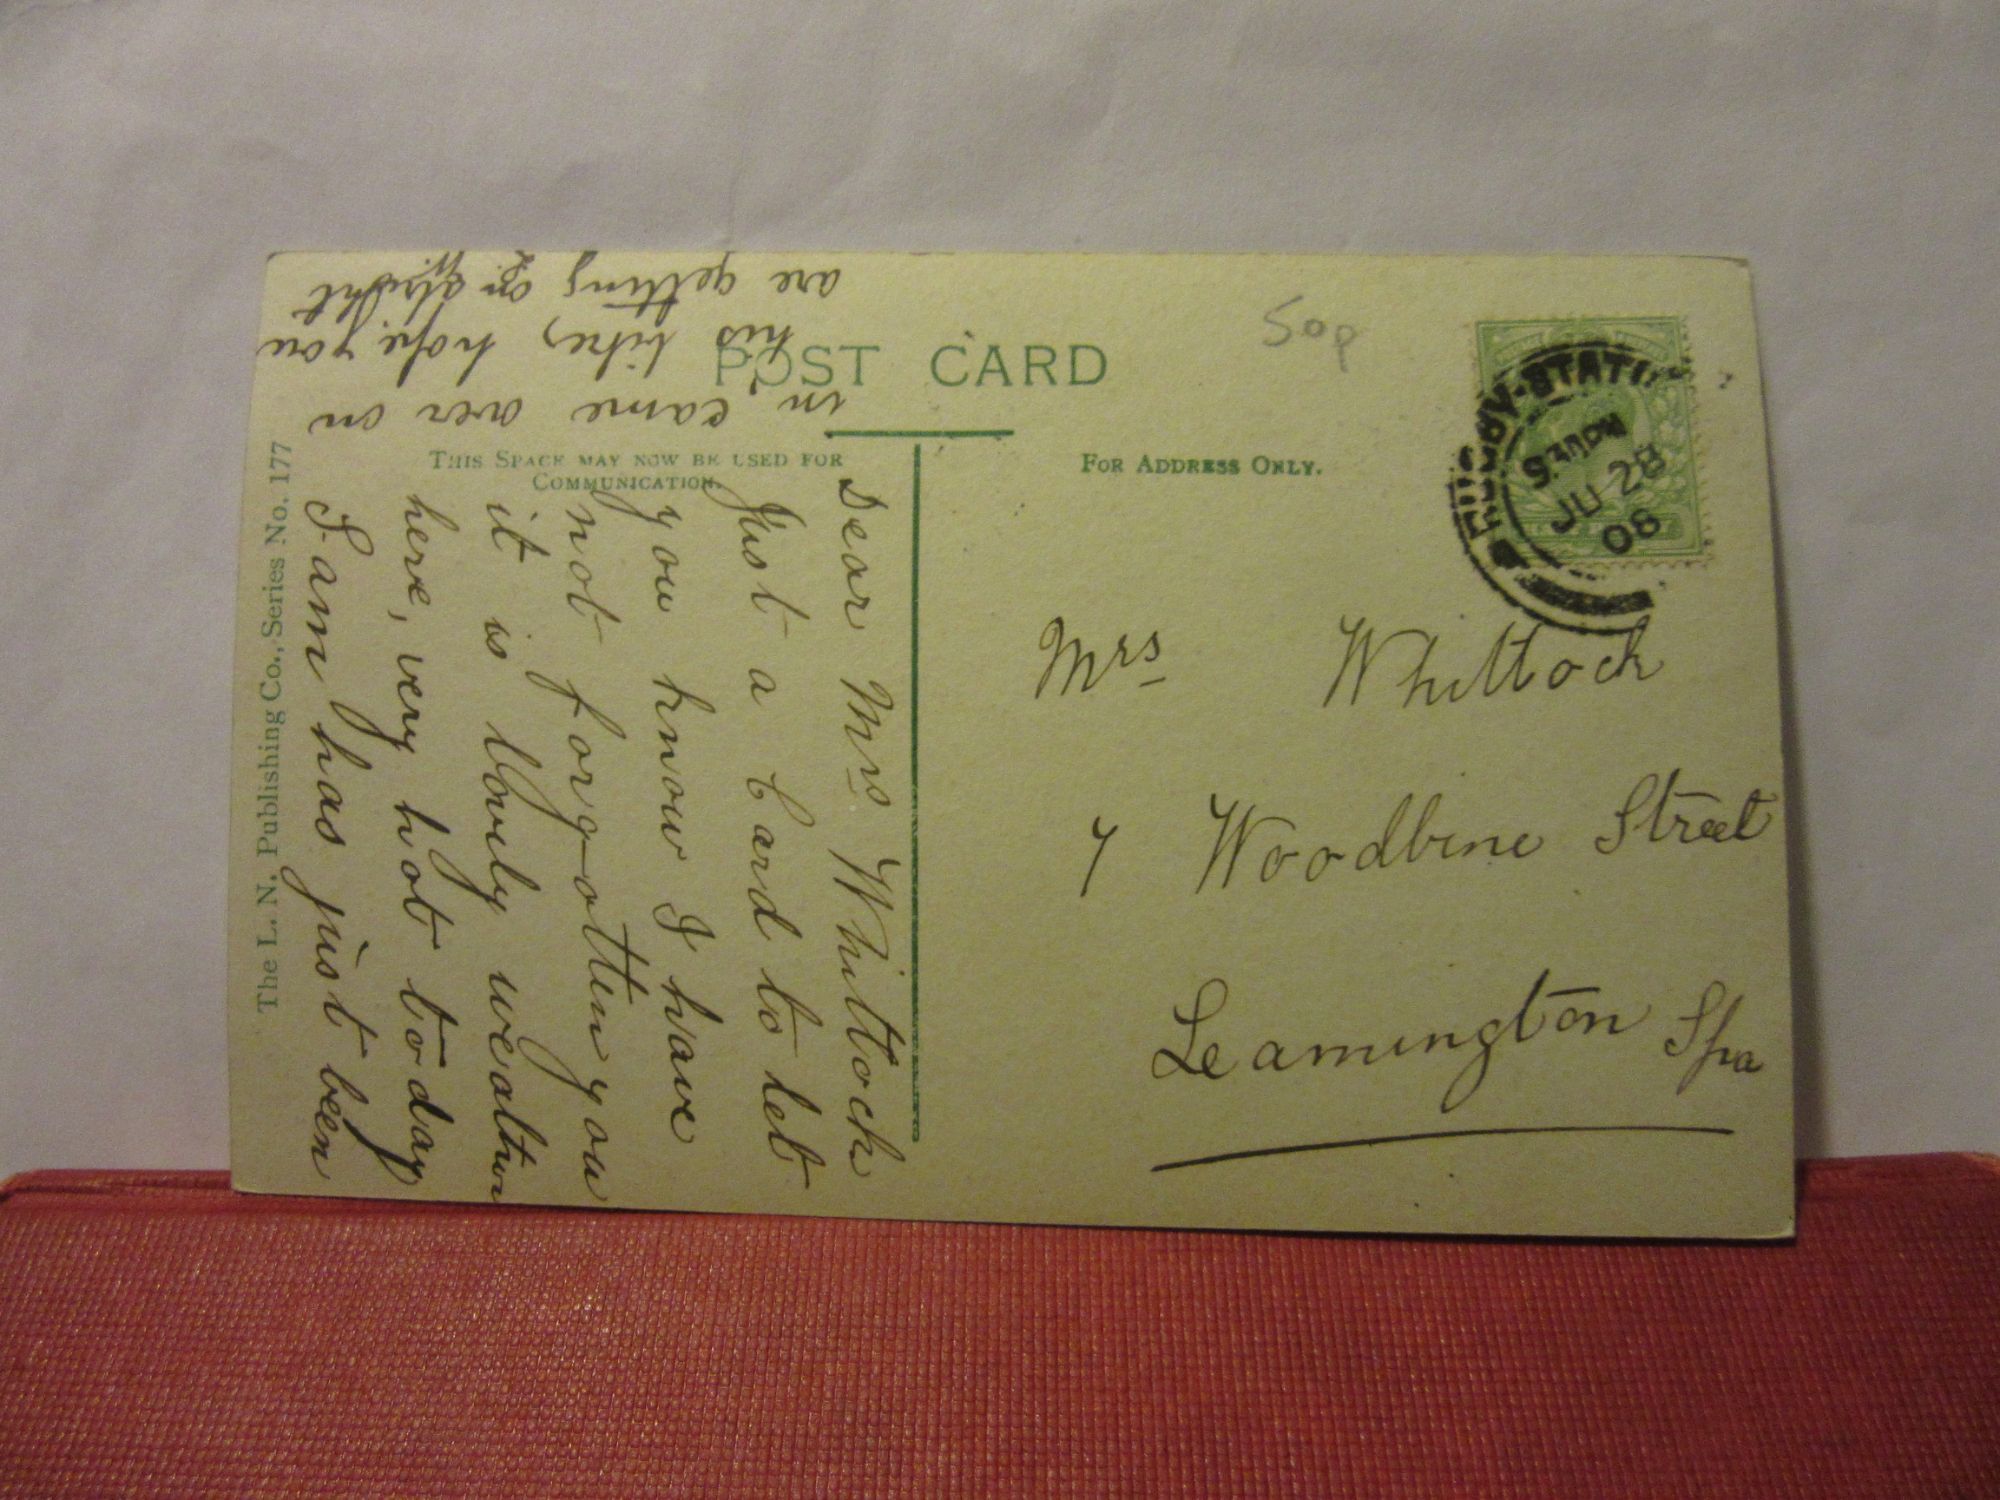 POST CARD
THIS SPACE MAY NOW BE USED FOR
COMMUNICATION.
FOR ADDRESS ONLY.
The L. N. Publishing Co., Series No. 177
50p
RUGBY-STATI
JU 28
08
Mrs Whittock
7 Woodbine Street
Leamington Spa
Dear Mrs Whittock
Just a Card to let
you know I have
not forgotten you
it is lovely weather
here, very hot to day
Sam has just been
in came over on
his bike, hope you
are getting on alright